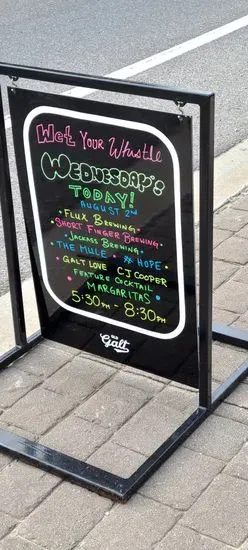 Wet Your Whistle
WEDNESDAY'S
TODAY!
AUGUST 2ND
• FLUX BREWING •
• SHORT FINGER BREWING •
JACKASS BREWING •
• THE MULE • HOPE •
• GALT LOVE CJ COOPER
FEATURE COCKTAIL
MARGARITAS •
5:30PM - 8:30PM
Galt